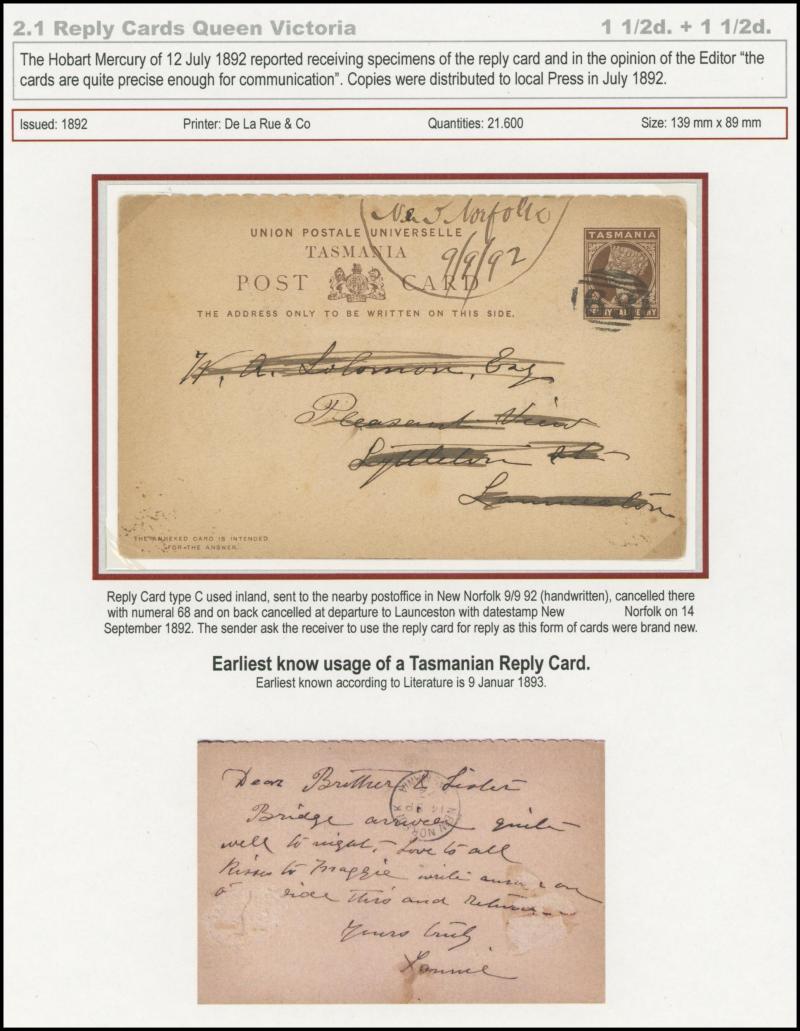 2.1 Reply Cards Queen Victoria 1 1/2d. + 1 1/2d.
The Hobart Mercury of 12 July 1892 reported receiving specimens of the reply card and in the opinion of the Editor “the
cards are quite precise enough for communication”. Copies were distributed to local Press in July 1892.
Issued: 1892 Printer: De La Rue & Co Quantities: 21.600 Size: 139 mm x 89 mm
New Norfolk
9/9/92
UNION POSTALE UNIVERSELLE
TASMANIA
POST CARD
THE ADDRESS ONLY TO BE WRITTEN ON THIS SIDE.
TASMANIA
W. A. Solomon, Esq
Pleasant View
Lyttleton St
Launceston
THE ANNEXED CARD IS INTENDED
FOR THE ANSWER.
Reply Card type C used inland, sent to the nearby postoffice in New Norfolk 9/9 92 (handwritten), cancelled there
with numeral 68 and on back cancelled at departure to Launceston with datestamp New Norfolk on 14
September 1892. The sender ask the receiver to use the reply card for reply as this form of cards were brand new.
Earliest know usage of a Tasmanian Reply Card.
Earliest known according to Literature is 9 Januar 1893.
Dear Brother & Sister
Bridge arrived quite
well to night, Love to all
Kisses to Maggie write on
side this and return
Yours truly